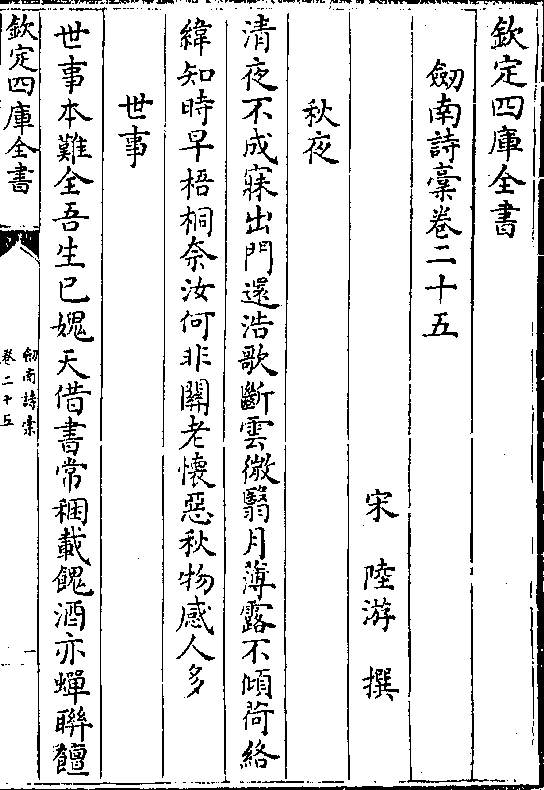 欽定四庫全書
劒南詩藳卷二十五
宋 陸游 撰
秋夜
清夜不成寐出門還浩歌斷雲微翳月薄露不傾荷絡
緯知時早梧桐奈汝何非關老懷惡秋物感人多
世事
世事本難全吾生已媿天借書常稛載餽酒亦蟬聨饘
欽定四庫全書
劒南詩藳
卷二十五
一